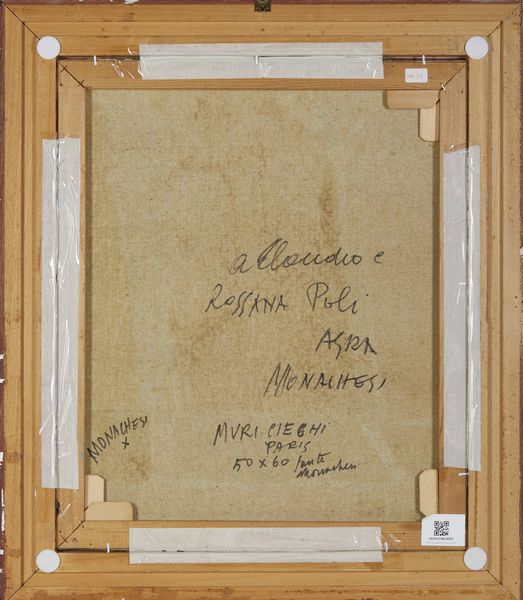 a Claudio e
ROSSANA Poli
AGRA
MONACHESI
MONACHESI
x
MURI CIECHI
PARIS
50 x 60 Sante
Monachesi